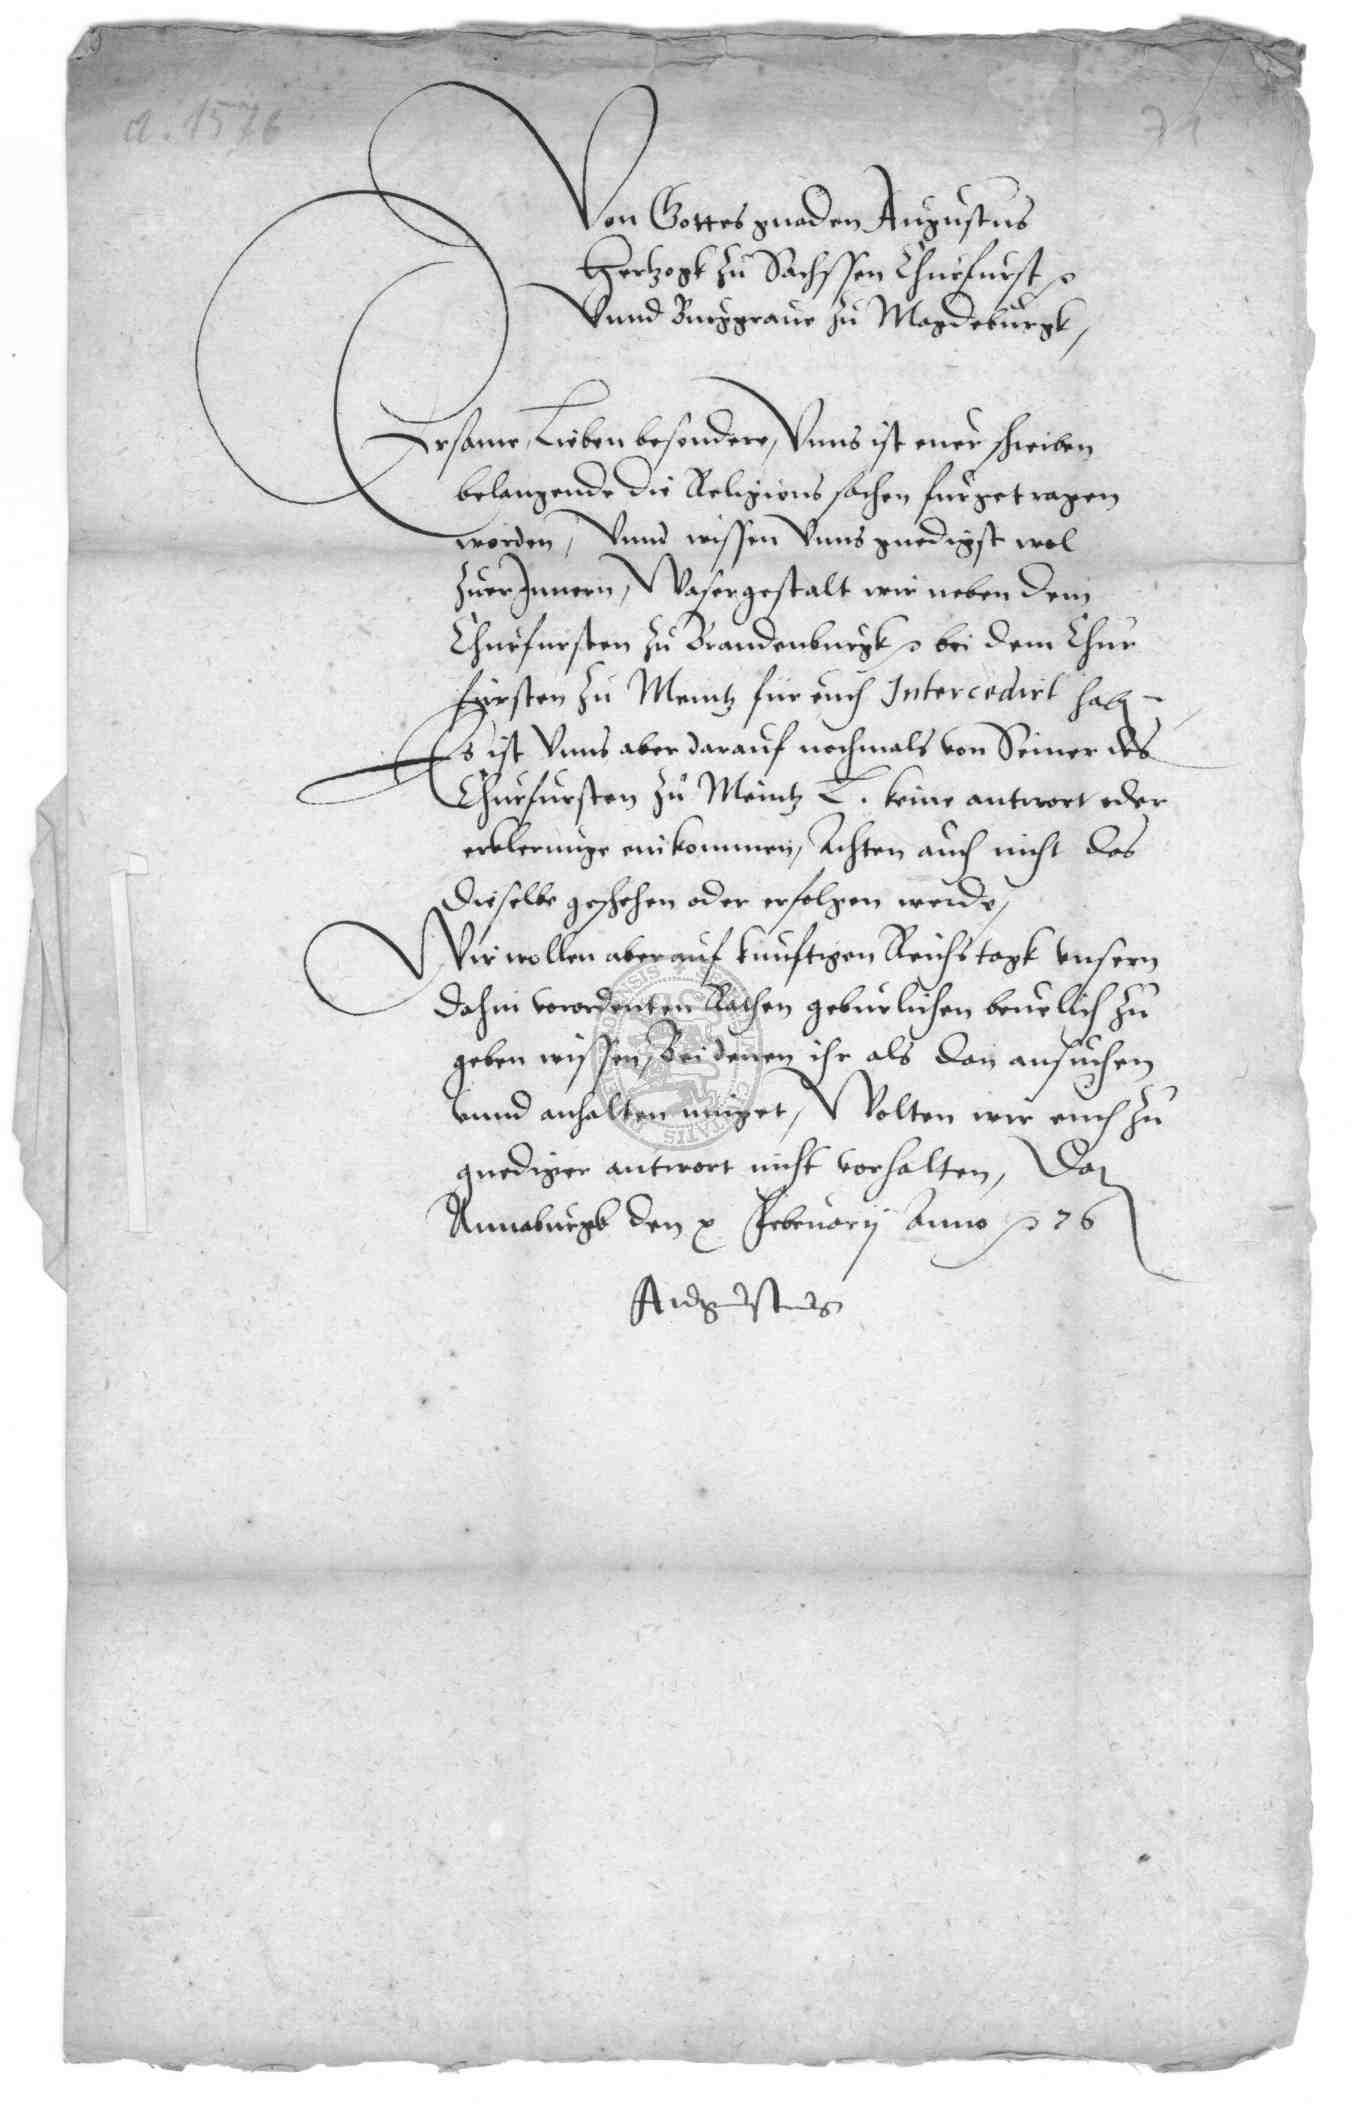 a. 1576
71
Von Gottes gnaden Augustus
Hertzogk zu Sachssen Churfurst
Vnnd Burggraue zu Magdeburgk,
Ersame, Lieben besondere, Vnns ist euer schreiben
belangende die Religions sachen furgetragen
worden, Vnnd wissen Vnns gnedigst wol
zuerJnnern, Wasergestalt wir neben dem
Churfursten zu Brandenburgk bei dem Chur
fursten zu Meintz fur euch Intercedirt hab
Es ist Vnns aber darauf nochmals von Seiner des
Churfursten zu Meintz L. keine antwort oder
erklerunge einkommen, Achten auch nicht das
dieselbe geschehen oder erfolgen werde,
Wir wollen aber auf kunftigen Reichstagk vnsern
dahin verordenten Rathen geburlichen beuelich zu
geben wissen, Bei denen ihr als dan ansuchen
vnnd anhalten muget, Wolten wir euch zu
gnediger antwort nicht vorhalten, Dat
Annaburgk den x Februarij Anno 76
Augustus